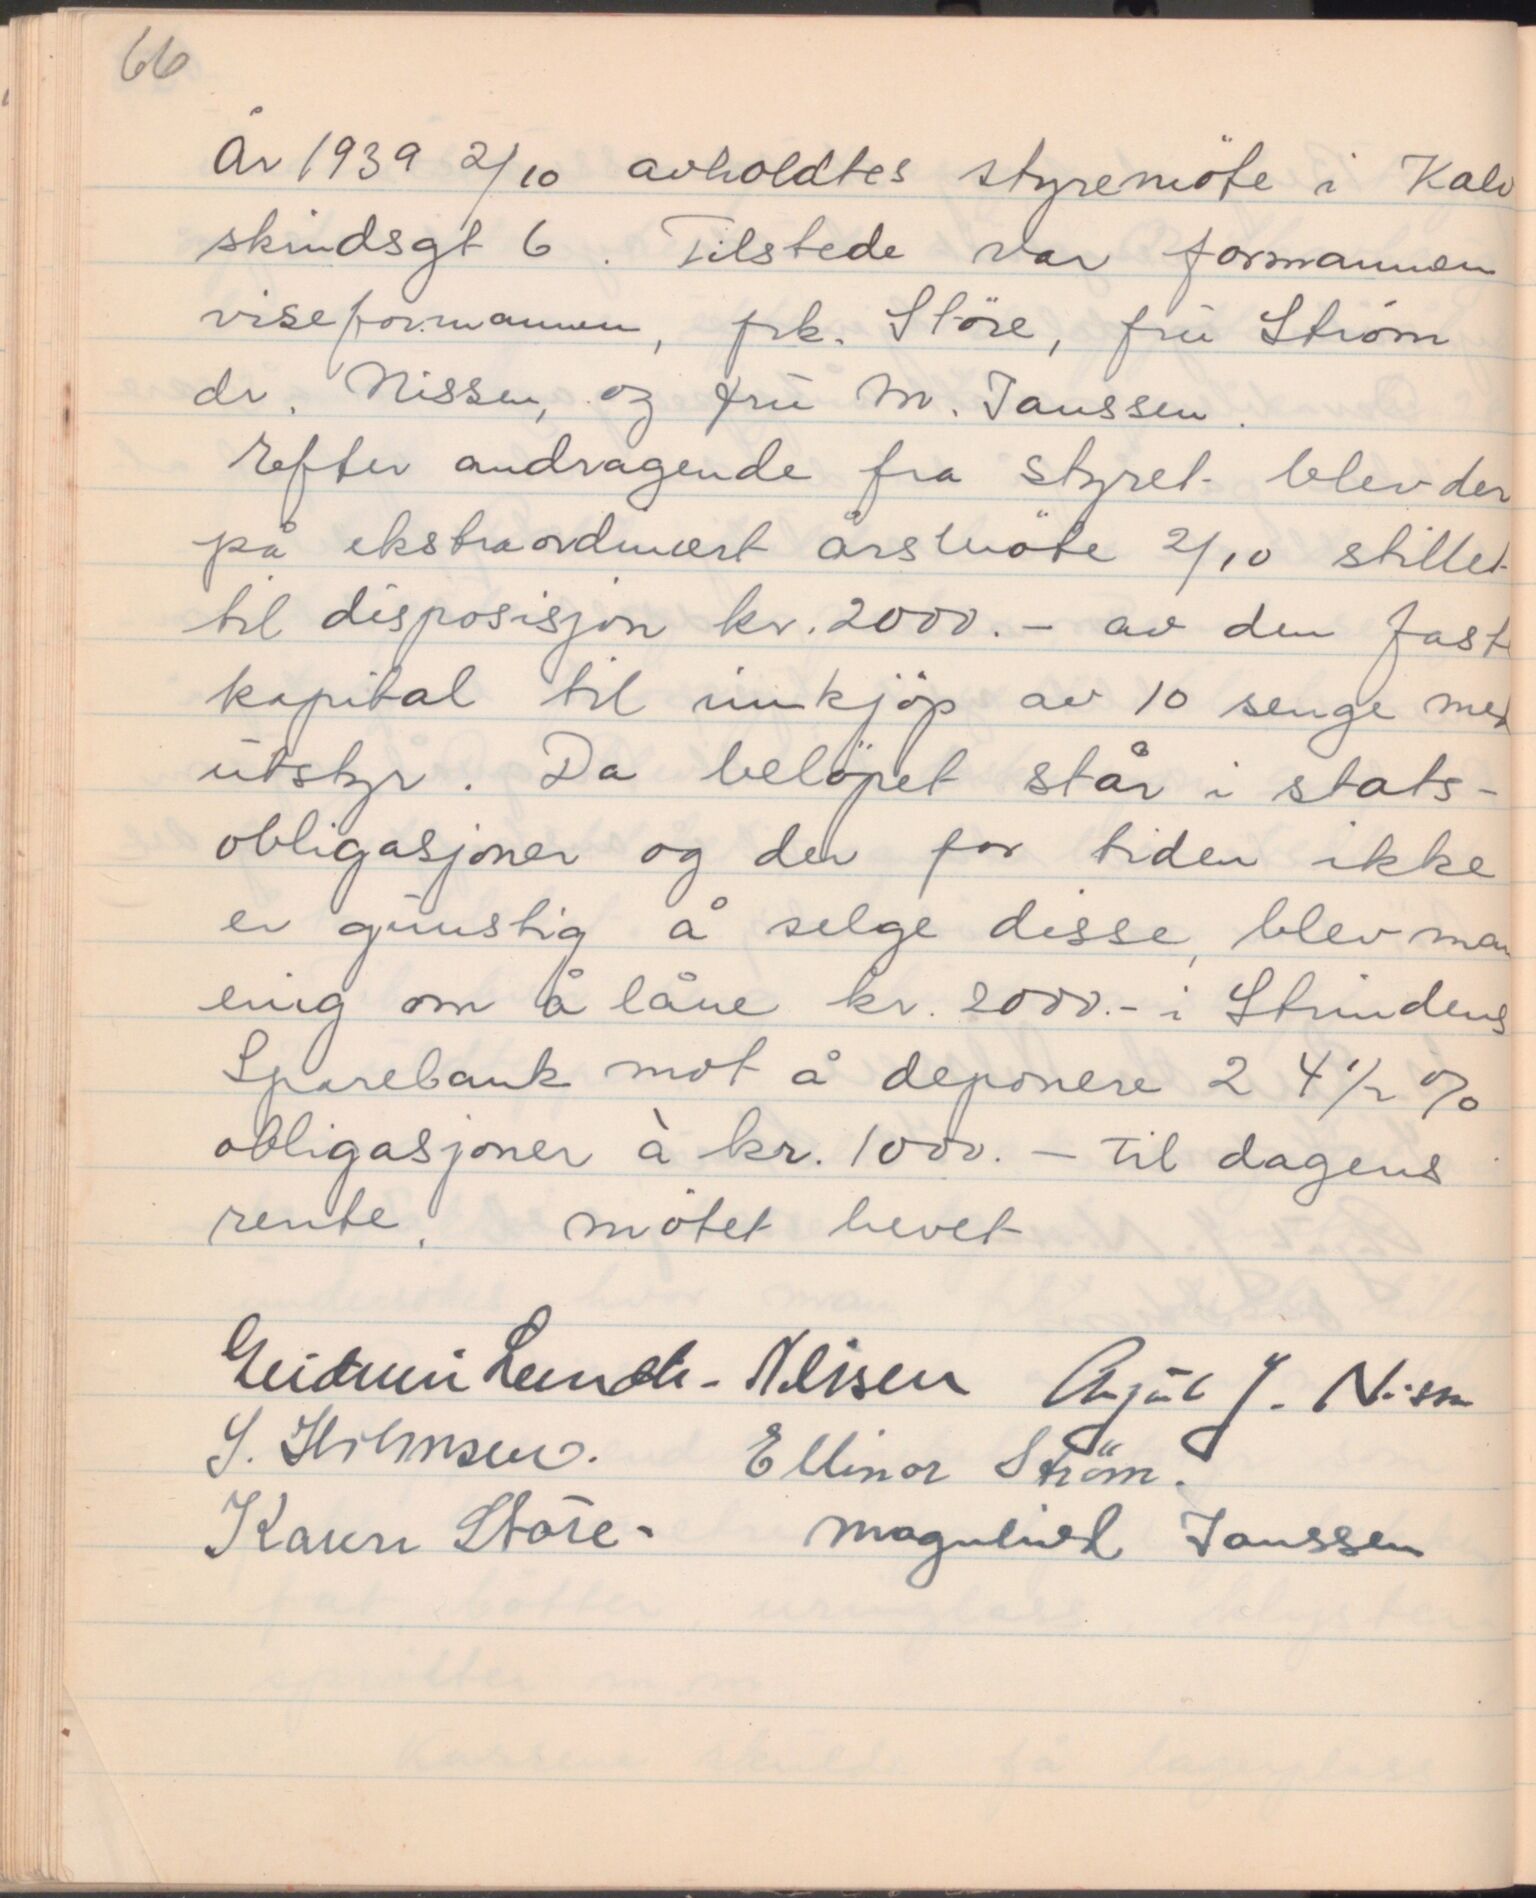 66
År 1939 2/10 avholdtes styremöte i Kalv
skindsgt 6. Tilstede var formannen
viseformannen, frk. Störe, fru Ström
dr. Nissen, og fru M. Janssen.
Efter andragende fra styret blev der
på ekstraordinært årsmöte 2/10 stillet
til disposisjon kr. 2000.- av den fast
kapital til innkjöp av 10 senge med
utstyr. Da belöpet står i stats-
obligasjoner og der for tiden ikke
er gunstig å selge disse, blev man
enig om å låne kr. 2000.- i Strindens
Sparebank mot å deponere 2 4 1/2 %
obligasjoner à kr. 1000.- til dagens
rente. Mötet hevet
Gudrun Lund-Nilsen J. Nissen
S. Ellinor Ström.
Karen Störe. Magnhild Janssen